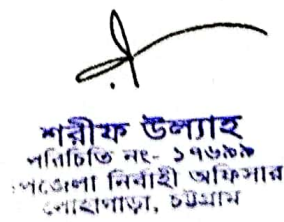 শরীফ উল্যাহ
পরিচিতি নং- ১৭৬৯৯
উপজেলা নির্বাহী অফিসার
লোহাগাড়া, চট্টগ্রাম